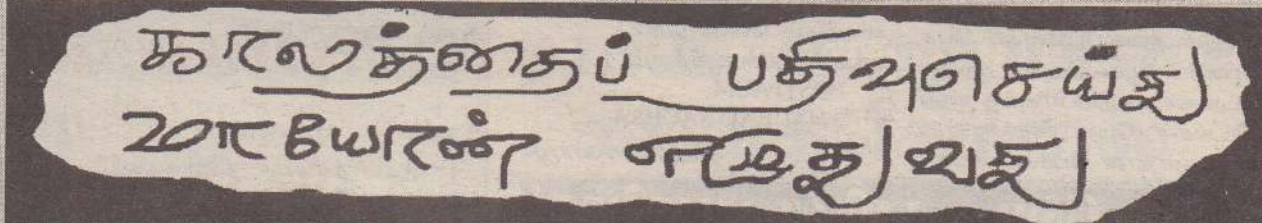 காலத்தைப் பதிவுசெய்து
மாயோன் எழுதுவது